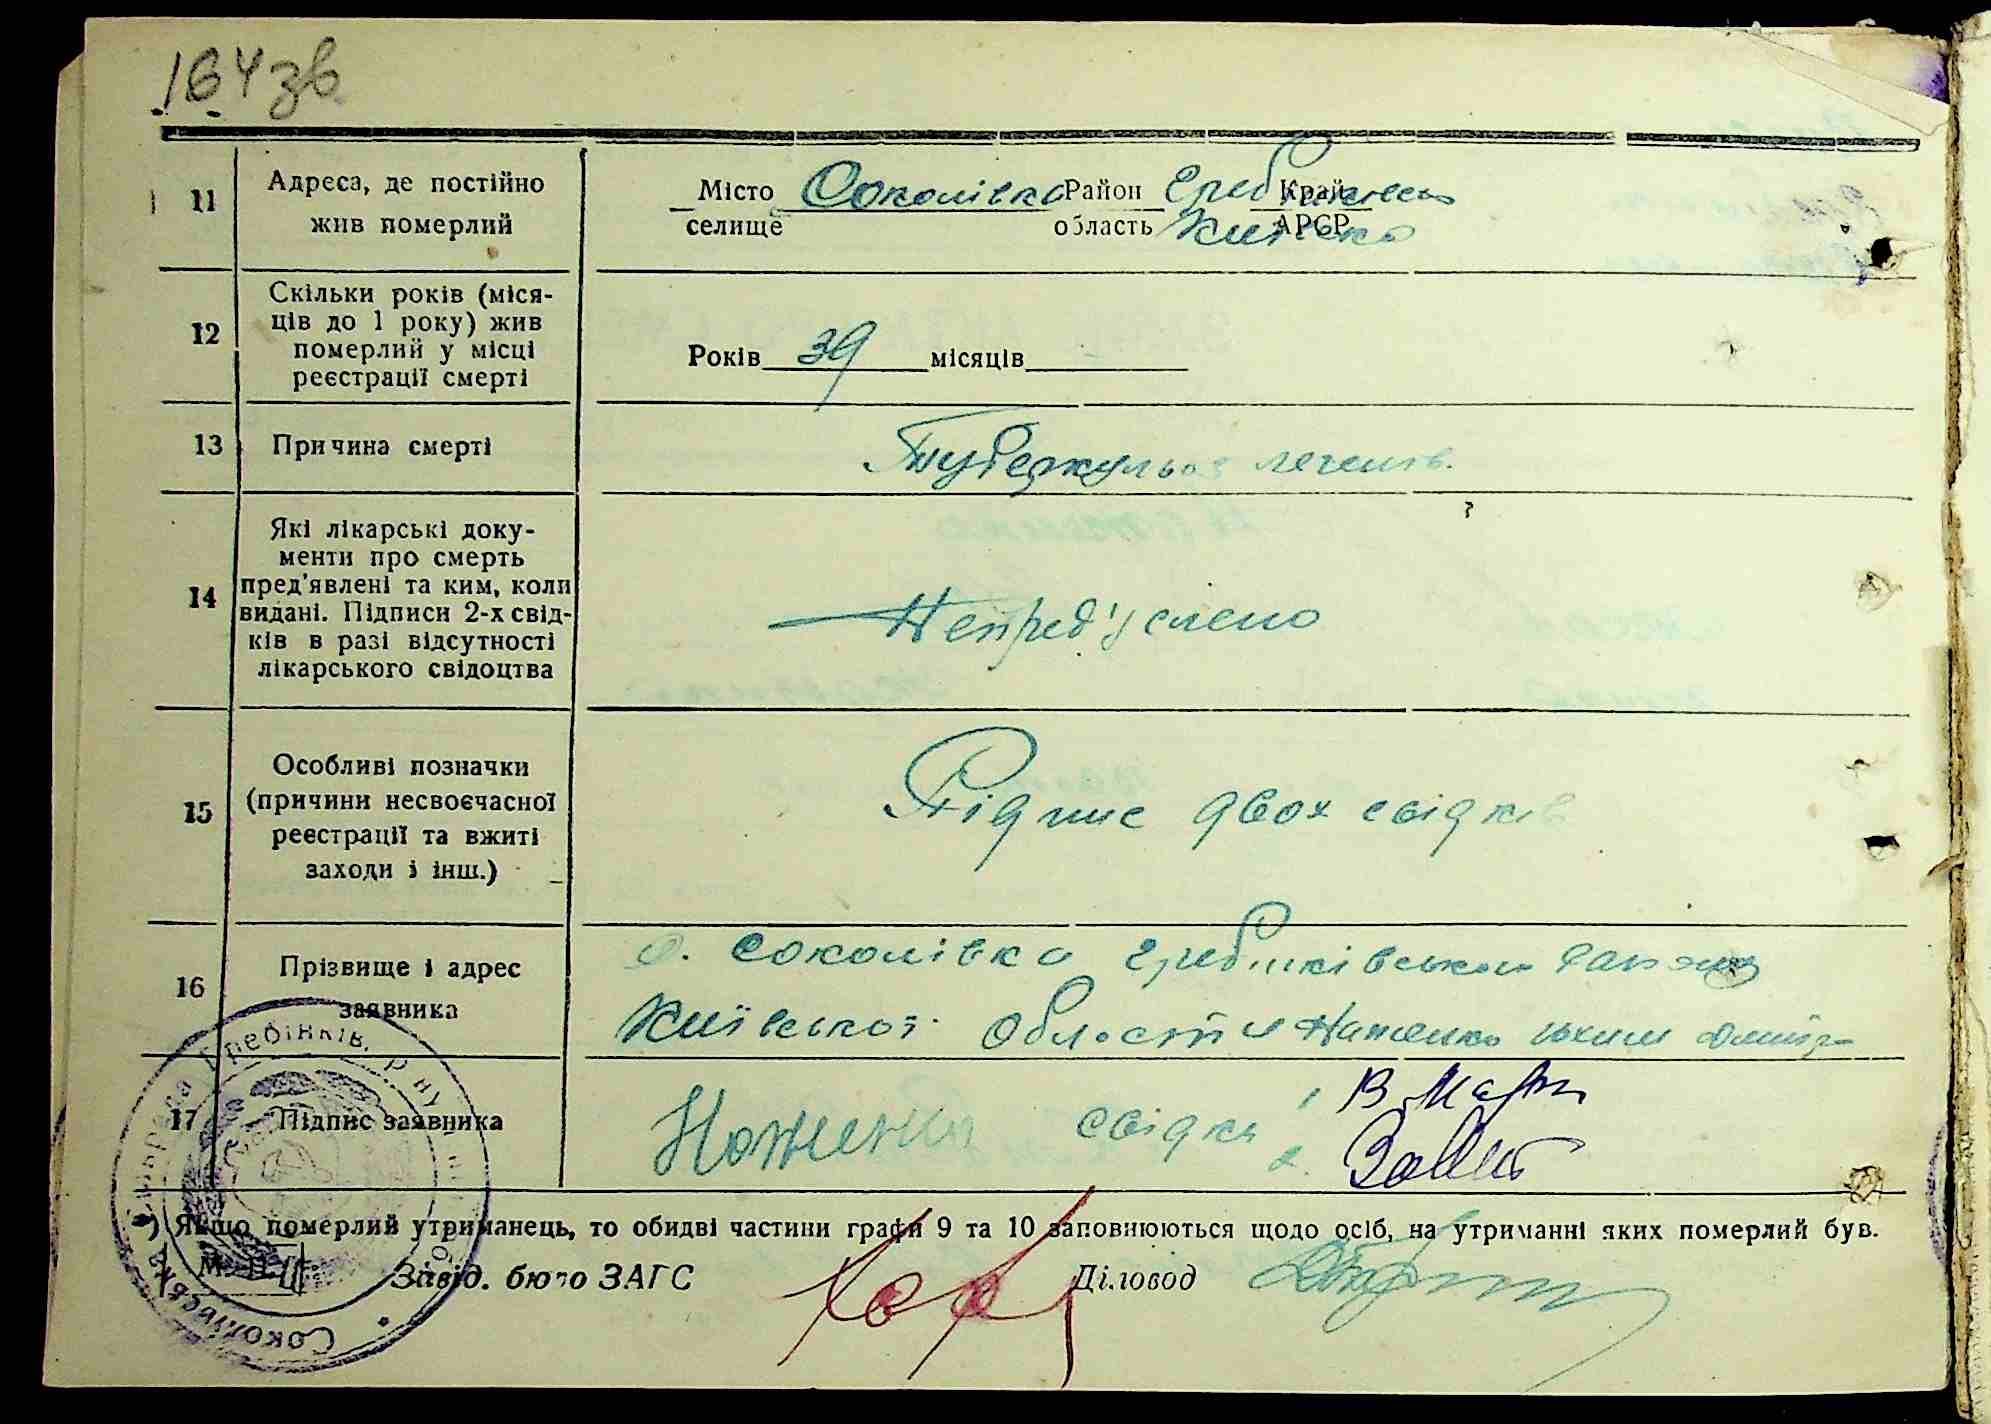 164зв
11
Адреса, де постійно
жив померлий
Місто Соколівка Район Край
селище область АРСР
12
Скільки років (міся-
ців до 1 року) жив
померлий у місці
реєстрації смерті
Років 39 місяців
13
Причина смерті
Туберкульоз легенів.
14
Які лікарські доку-
менти про смерть
пред'явлені та ким, коли
видані. Підписи 2-х свід-
ків в разі відсутності
лікарського свідоцтва
15
Особливі позначки
(причини несвоєчасної
реєстрації та вжиті
заходи і інш.)
Підпис двох свідків
16
Прізвище і адрес
заявника
с. Соколівка Гребінківського району
Київської області
17
Підпис заявника
свідки 1
2.
) Якщо померлий утриманець, то обидві частини графи 9 та 10 заповнюються щодо осіб, на утриманні яких померлий був.
М. П.
Завід. бюро ЗАГС
Діловод